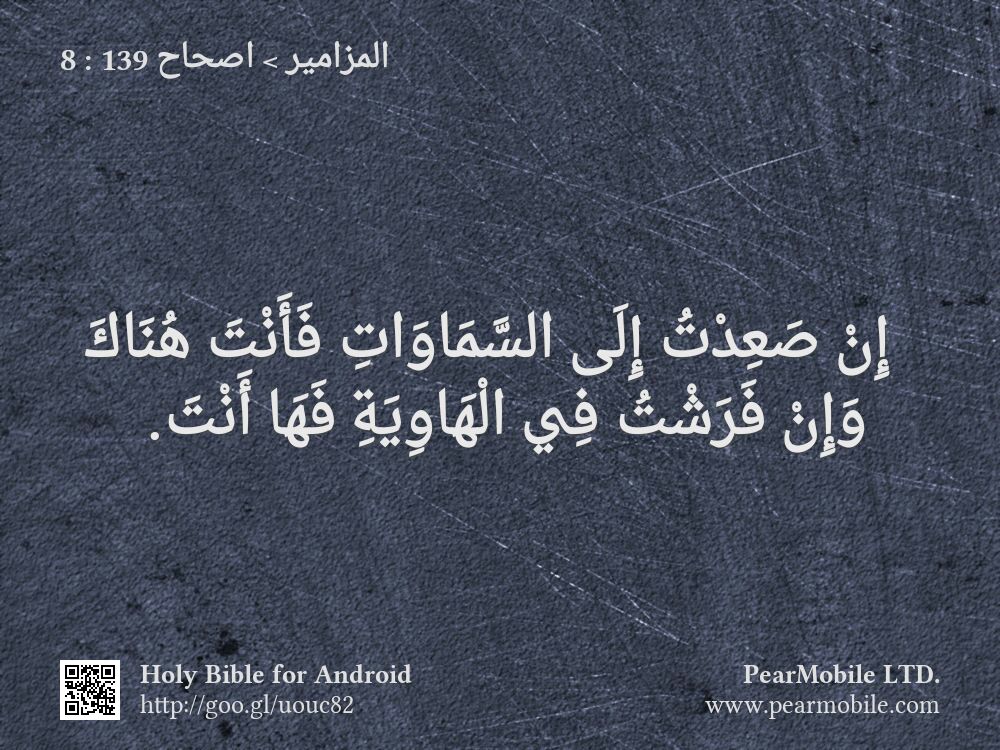 المزامير > اصحاح 139 : 8
إِنْ صَعِدْتُ إِلَى السَّمَاوَاتِ فَأَنْتَ هُنَاكَ
وَإِنْ فَرَشْتُ فِي الْهَاوِيَةِ فَهَا أَنْتَ.
Holy Bible for Android
http://goo.gl/uouc82
PearMobile LTD.
www.pearmobile.com